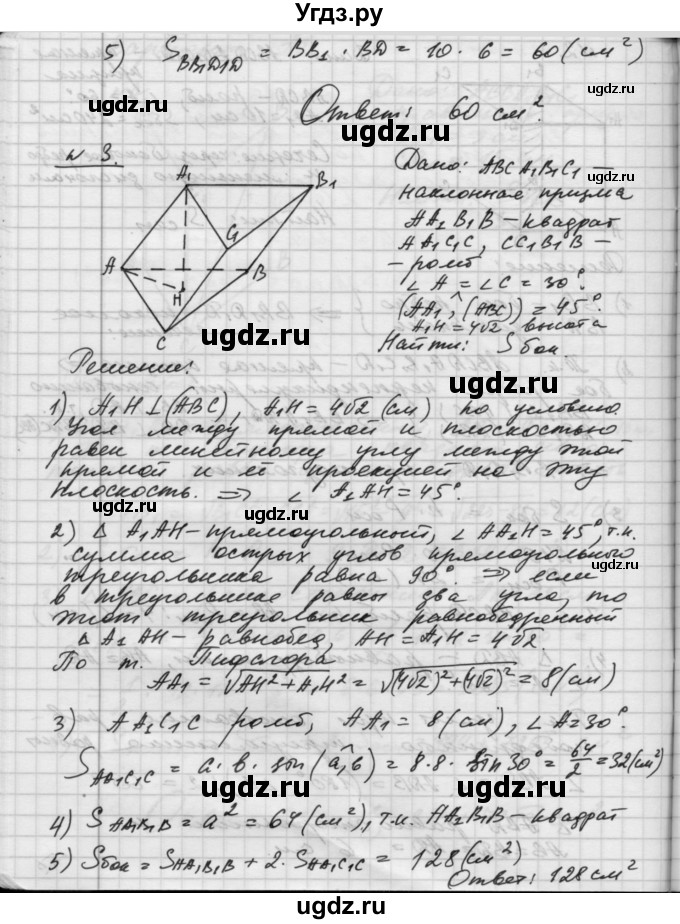 Угдз.ру
5) S BB1D1D = BB1 · BD = 10 · 6 = 60 (см²)
ugdz.ru ugdz.ru
Ответ: 60 см².
№ 3.
Дано: ABCA1B1C1 —
наклонная призма
AA1B1B – квадрат
AA1C1C, CC1B1B –
– ромб
∠A = ∠C = 30°.
(AA1,^(ABC)) = 45°.
A1H = 4√2 высота
Найти: Sбок.
A1 B1 C1 A B H C
ugdz.ru ugdz.ru
Решение:
1) A1H ⊥ (ABC), A1H = 4√2 (см) по условию
Угол между прямой и плоскостью
равен линейному углу между этой
прямой и её проекцией на эту
плоскость. ⇒ ∠ A1AH = 45°.
ugdz.ru
2) △ A1AH – прямоугольный, ∠ AA1H = 45°, т.к.
сумма острых углов прямоугольного
треугольника равна 90°. ⇒ если
в треугольнике равны два угла, то
этот треугольник равнобедренный
△ A1AH – равнобед, AH = A1H = 4√2.
По т. Пифагора
AA1 = √AH² + A1H² = √(4√2)² + (4√2)² = 8 (см)
3) AA1C1C ромб, AA1 = 8 (см), ∠A = 30°.
S AA1C1C = a · b · sin (a,^b) = 8 · 8 · sin 30° = 64/2 = 32 (см²)
ugdz.ru ugdz.ru
4) S AA1B1B = a² = 64 (см²), т.к. AA1B1B – квадрат
5) Sбок = S AA1B1B + 2 · S AA1C1C = 128 (см²)
Ответ: 128 см²
ugdz.ru